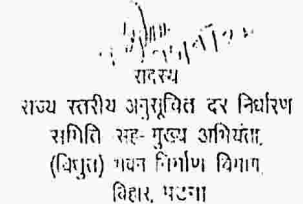 सदस्य
राज्य स्तरीय अनुसूचित दर निर्धारण
समिति सह- मुख्य अभियंता,
(विद्युत) भवन निर्माण विभाग,
बिहार, पटना